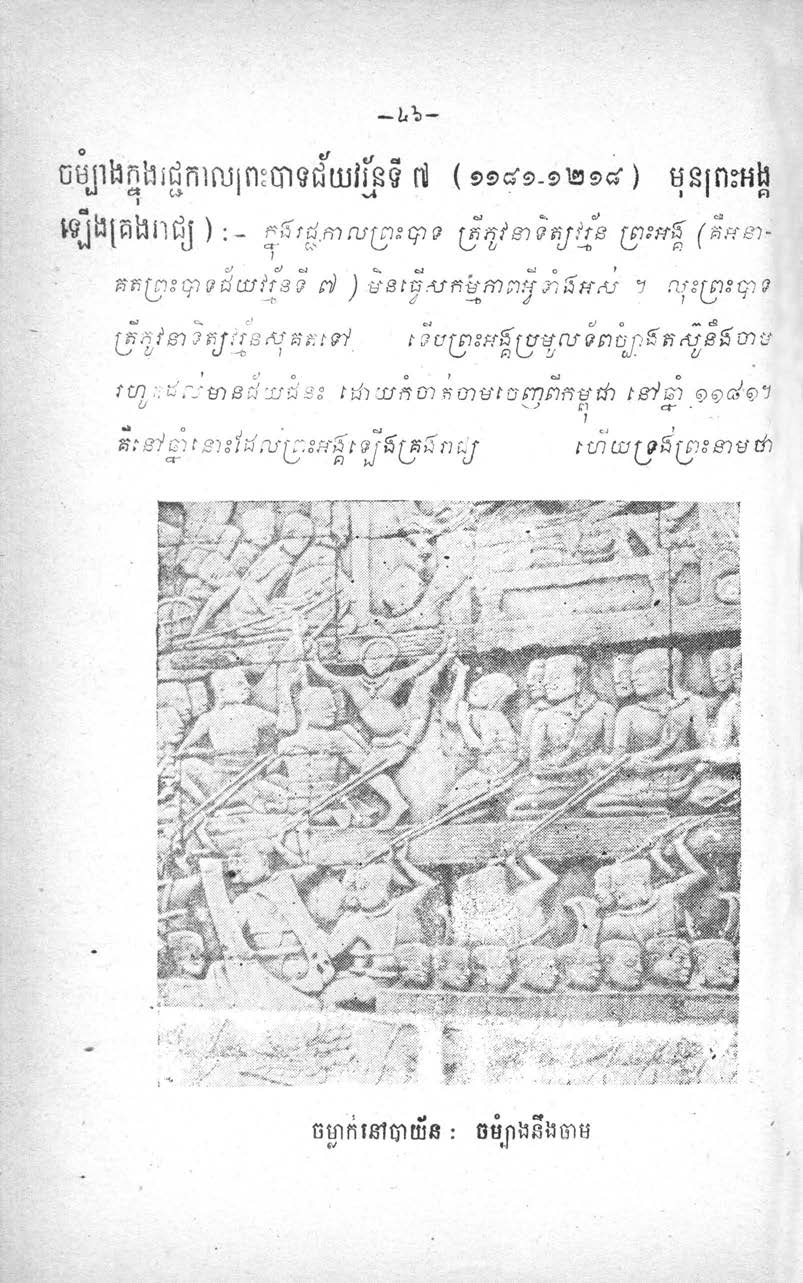 –៤៦–
ចម្បាំងក្នុងរជ្ជកាលព្រះបាទជ័យវរ្ម័នទី ៧ ( ១១៨១-១២១៨ ) មុនព្រះអង្គ
ឡើងគ្រងរាជ្យ ) : – ក្នុងរជ្ជកាលព្រះបាទ ត្រីភូវនាទិត្យវរ្ម័ន ព្រះអង្គ (គឺអនា-
គតព្រះបាទជ័យវរ្ម័នទី ៧ ) មិនធ្វើសកម្មភាពអ្វីទាំងអស់ ។ លុះព្រះបាទ
ត្រីភូវនាទិត្យវរ្ម័នសុគតទៅ ទើបព្រះអង្គប្រមូលទ័ពច្បាំងតស៊ូនឹងចាម
រហូតដល់មានជ័យជំនះ ដោយកំចាត់ចាមចេញពីកម្ពុជា នៅឆ្នាំ ១១៨១។
គឺនៅឆ្នាំនោះដែលព្រះអង្គឡើងគ្រងរាជ្យ ហើយទ្រង់ព្រះនាមថា
ចម្លាក់នៅបាយ័ន : ចម្បាំងនឹងចាម